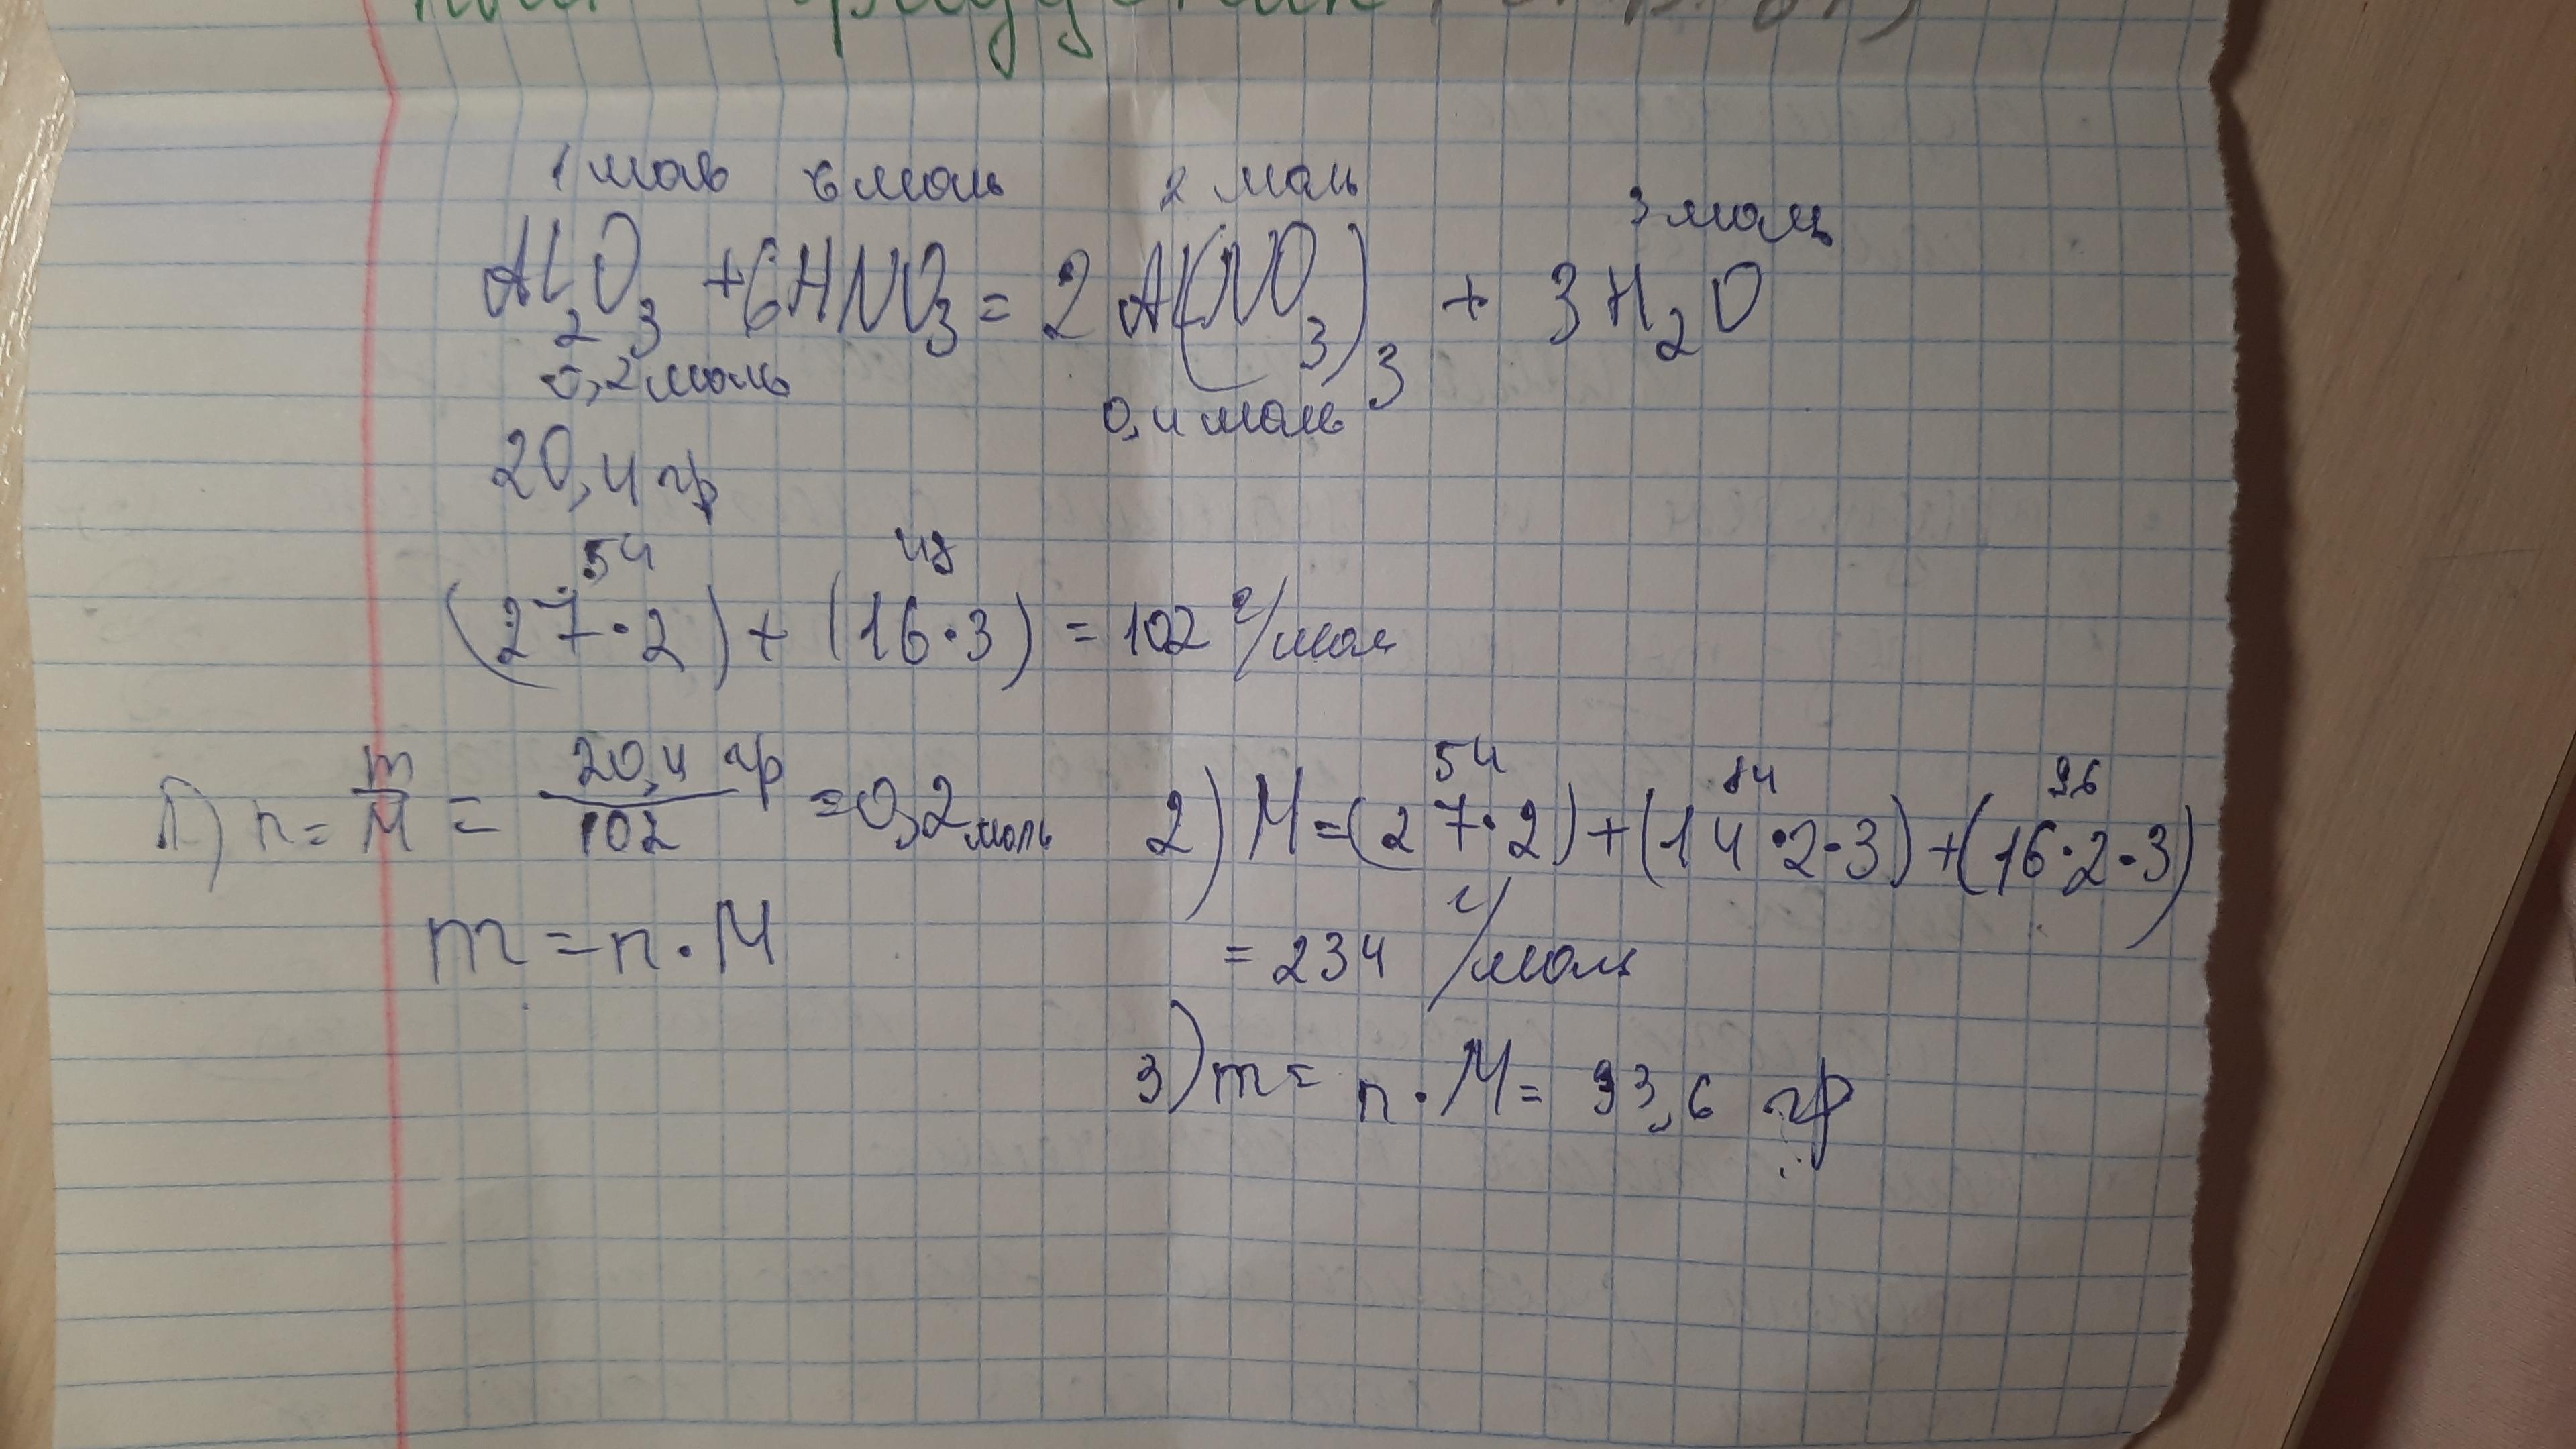 1 моль 6 моль 2 моль 3 моль
Al₂O₃ + 6HNO₃ = 2Al(NO₃)₃ + 3H₂O
0,2 моль 0,4 моль
20,4 гр
54 48
(27·2) + (16·3) = 102 г/мол
1) n = m/M = 20,4 гр/102 = 0,2 моль
m = n·M
54 84 96
2) M = (27·2) + (14·2·3) + (16·2·3)
= 234 г/моль
3) m = n·M = 93,6 гр